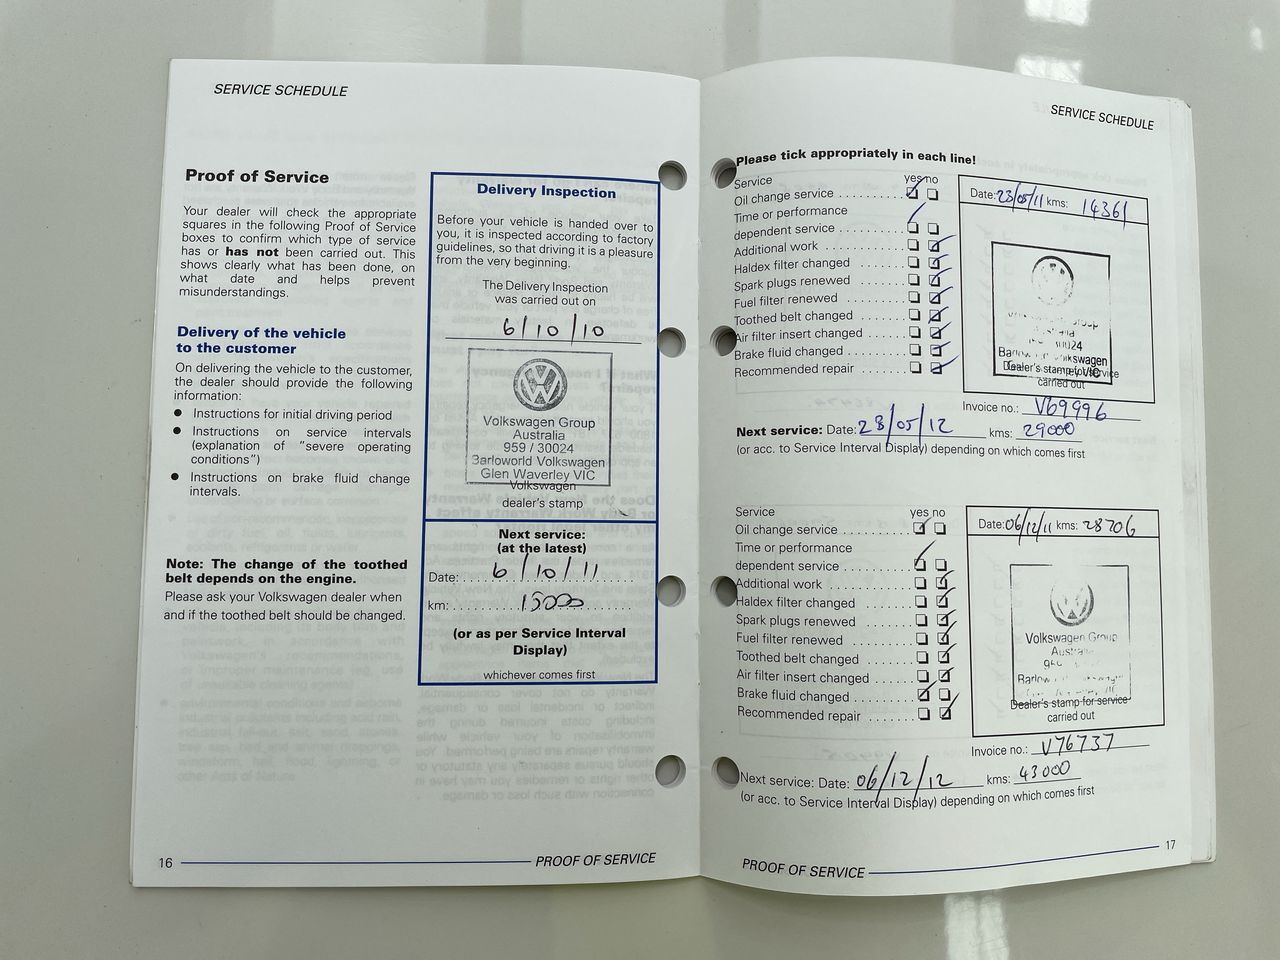 SERVICE SCHEDULE
Proof of Service
Your dealer will check the appropriate
squares in the following Proof of Service
boxes to confirm which type of service
has or has not been carried out. This
shows clearly what has been done, on
what date and helps prevent
misunderstandings.
Delivery of the vehicle
to the customer
On delivering the vehicle to the customer,
the dealer should provide the following
information:
● Instructions for initial driving period
● Instructions on service intervals
(explanation of "severe operating
conditions")
● Instructions on brake fluid change
intervals.
Note: The change of the toothed
belt depends on the engine.
Please ask your Volkswagen dealer when
and if the toothed belt should be changed.
Delivery Inspection
Before your vehicle is handed over to
you, it is inspected according to factory
guidelines, so that driving it is a pleasure
from the very beginning.
The Delivery Inspection
was carried out on
6/10/10
Volkswagen Group
Australia
959 / 30024
Barloworld Volkswagen
Glen Waverley VIC
Volkswagen
dealer's stamp
Next service:
(at the latest)
Date: 6/10/11
km: 15000
(or as per Service Interval
Display)
whichever comes first
16 PROOF OF SERVICE
SERVICE SCHEDULE
Please tick appropriately in each line!
Service yes no
Oil change service
Time or performance
dependent service
Additional work
Haldex filter changed
Spark plugs renewed
Fuel filter renewed
Toothed belt changed
Air filter insert changed
Brake fluid changed
Recommended repair
Date: 23/05/11 kms: 14361
Group
30024
Volkswagen
VIC
Dealer's stamp for service
carried out
Invoice no.: V69996
Next service: Date: 28/05/12 kms: 29000
(or acc. to Service Interval Display) depending on which comes first
Service yes no
Oil change service
Time or performance
dependent service
Additional work
Haldex filter changed
Spark plugs renewed
Fuel filter renewed
Toothed belt changed
Air filter insert changed
Brake fluid changed
Recommended repair
Date: 06/12/11 kms: 28706
Volkswagen Group
Dealer's stamp for service
carried out
Invoice no.: V76737
Next service: Date: 06/12/12 kms: 43000
(or acc. to Service Interval Display) depending on which comes first
PROOF OF SERVICE 17